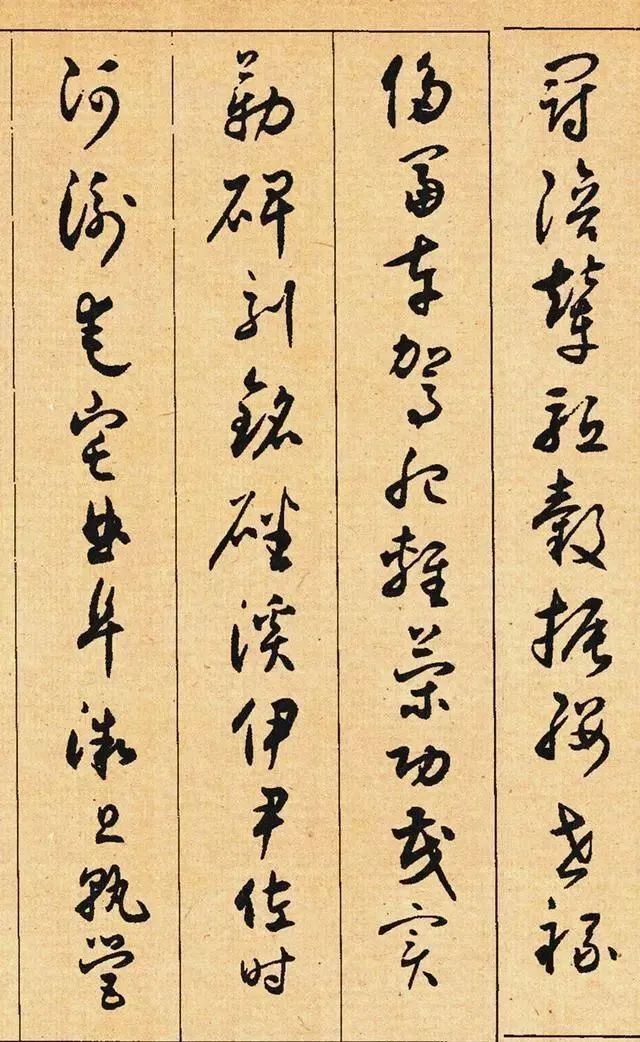 冠陪輦驅轂振纓世祿
侈富車駕肥輕策功茂實
勒碑刻銘磻溪伊尹佐時
阿衡奄宅曲阜微旦孰營